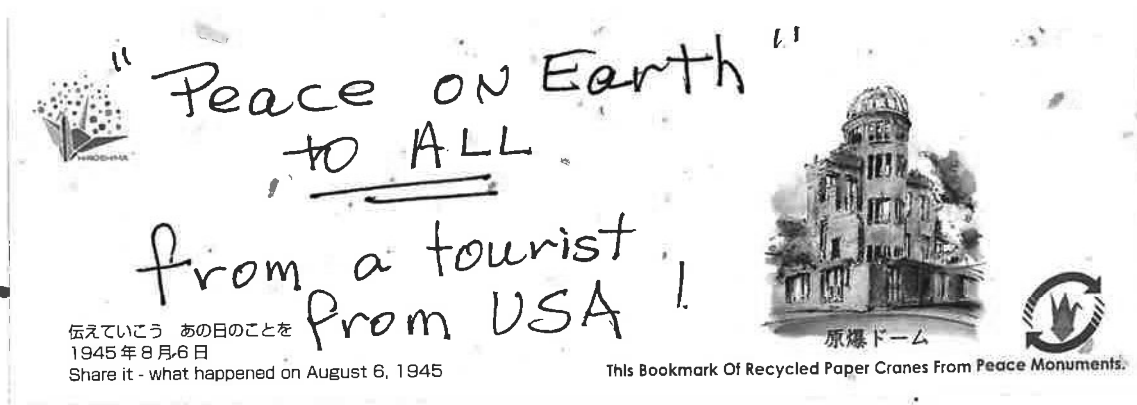 "Peace ON Earth"
to ALL
from a tourist
from USA !
HIROSHIMA
伝えていこう あの日のことを
1945年8月6日
Share it - what happened on August 6, 1945
原爆ドーム
This Bookmark Of Recycled Paper Cranes From Peace Monuments.